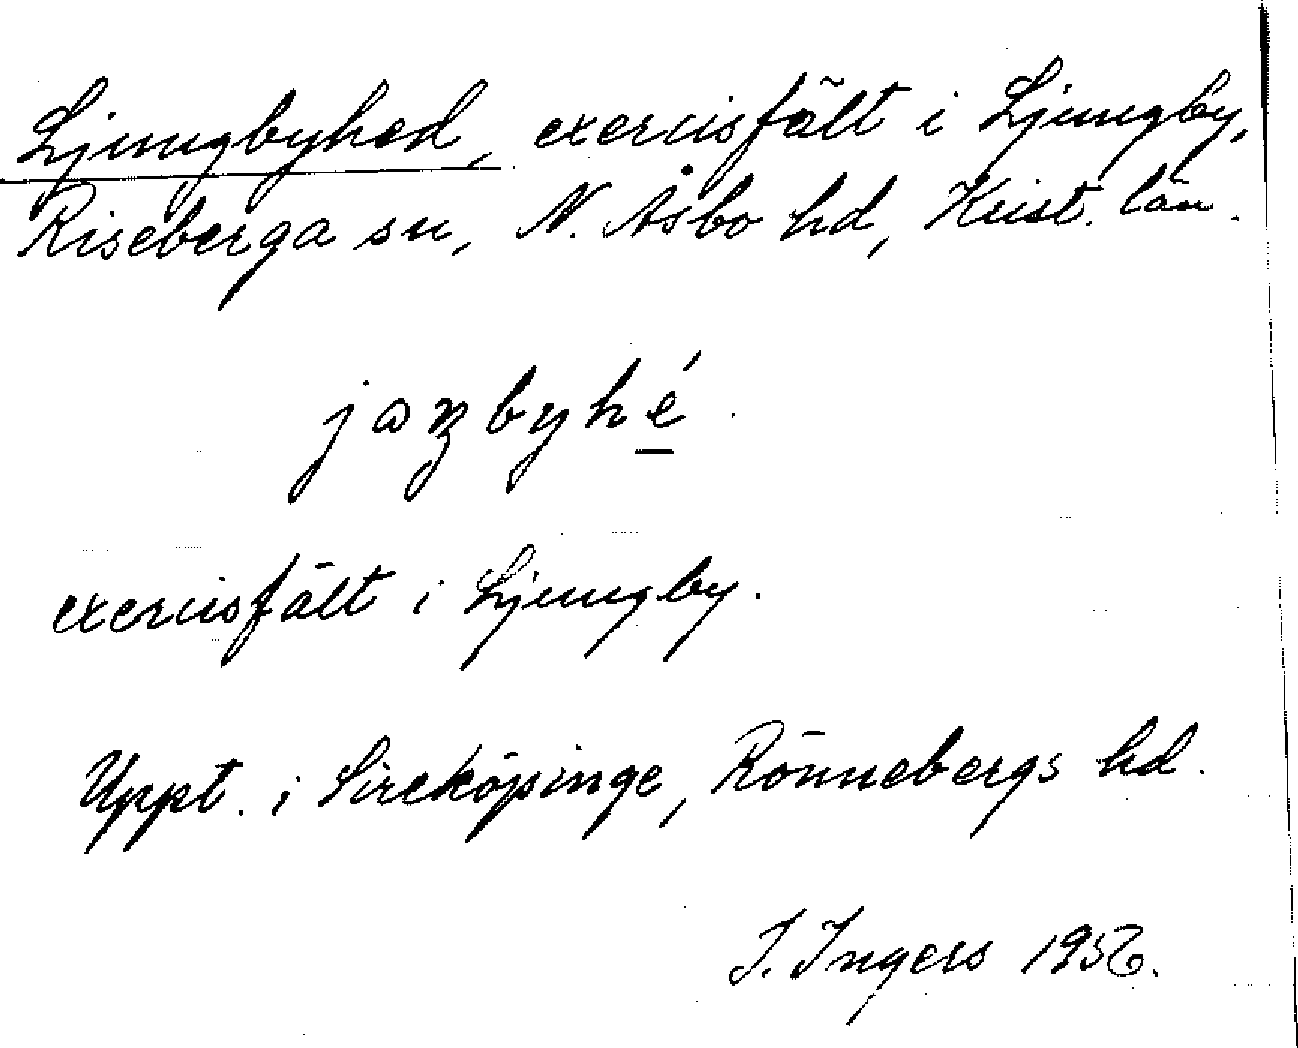 Ljungbyhed, exercisfält i Ljungby,
Riseberga sn, N. Åsbo hd, Krist. län.
jaŋbyhé
exercisfält i Ljungby.
Uppt. i Sireköpinge, Rönnebergs hd.
I. Ingers 1956.